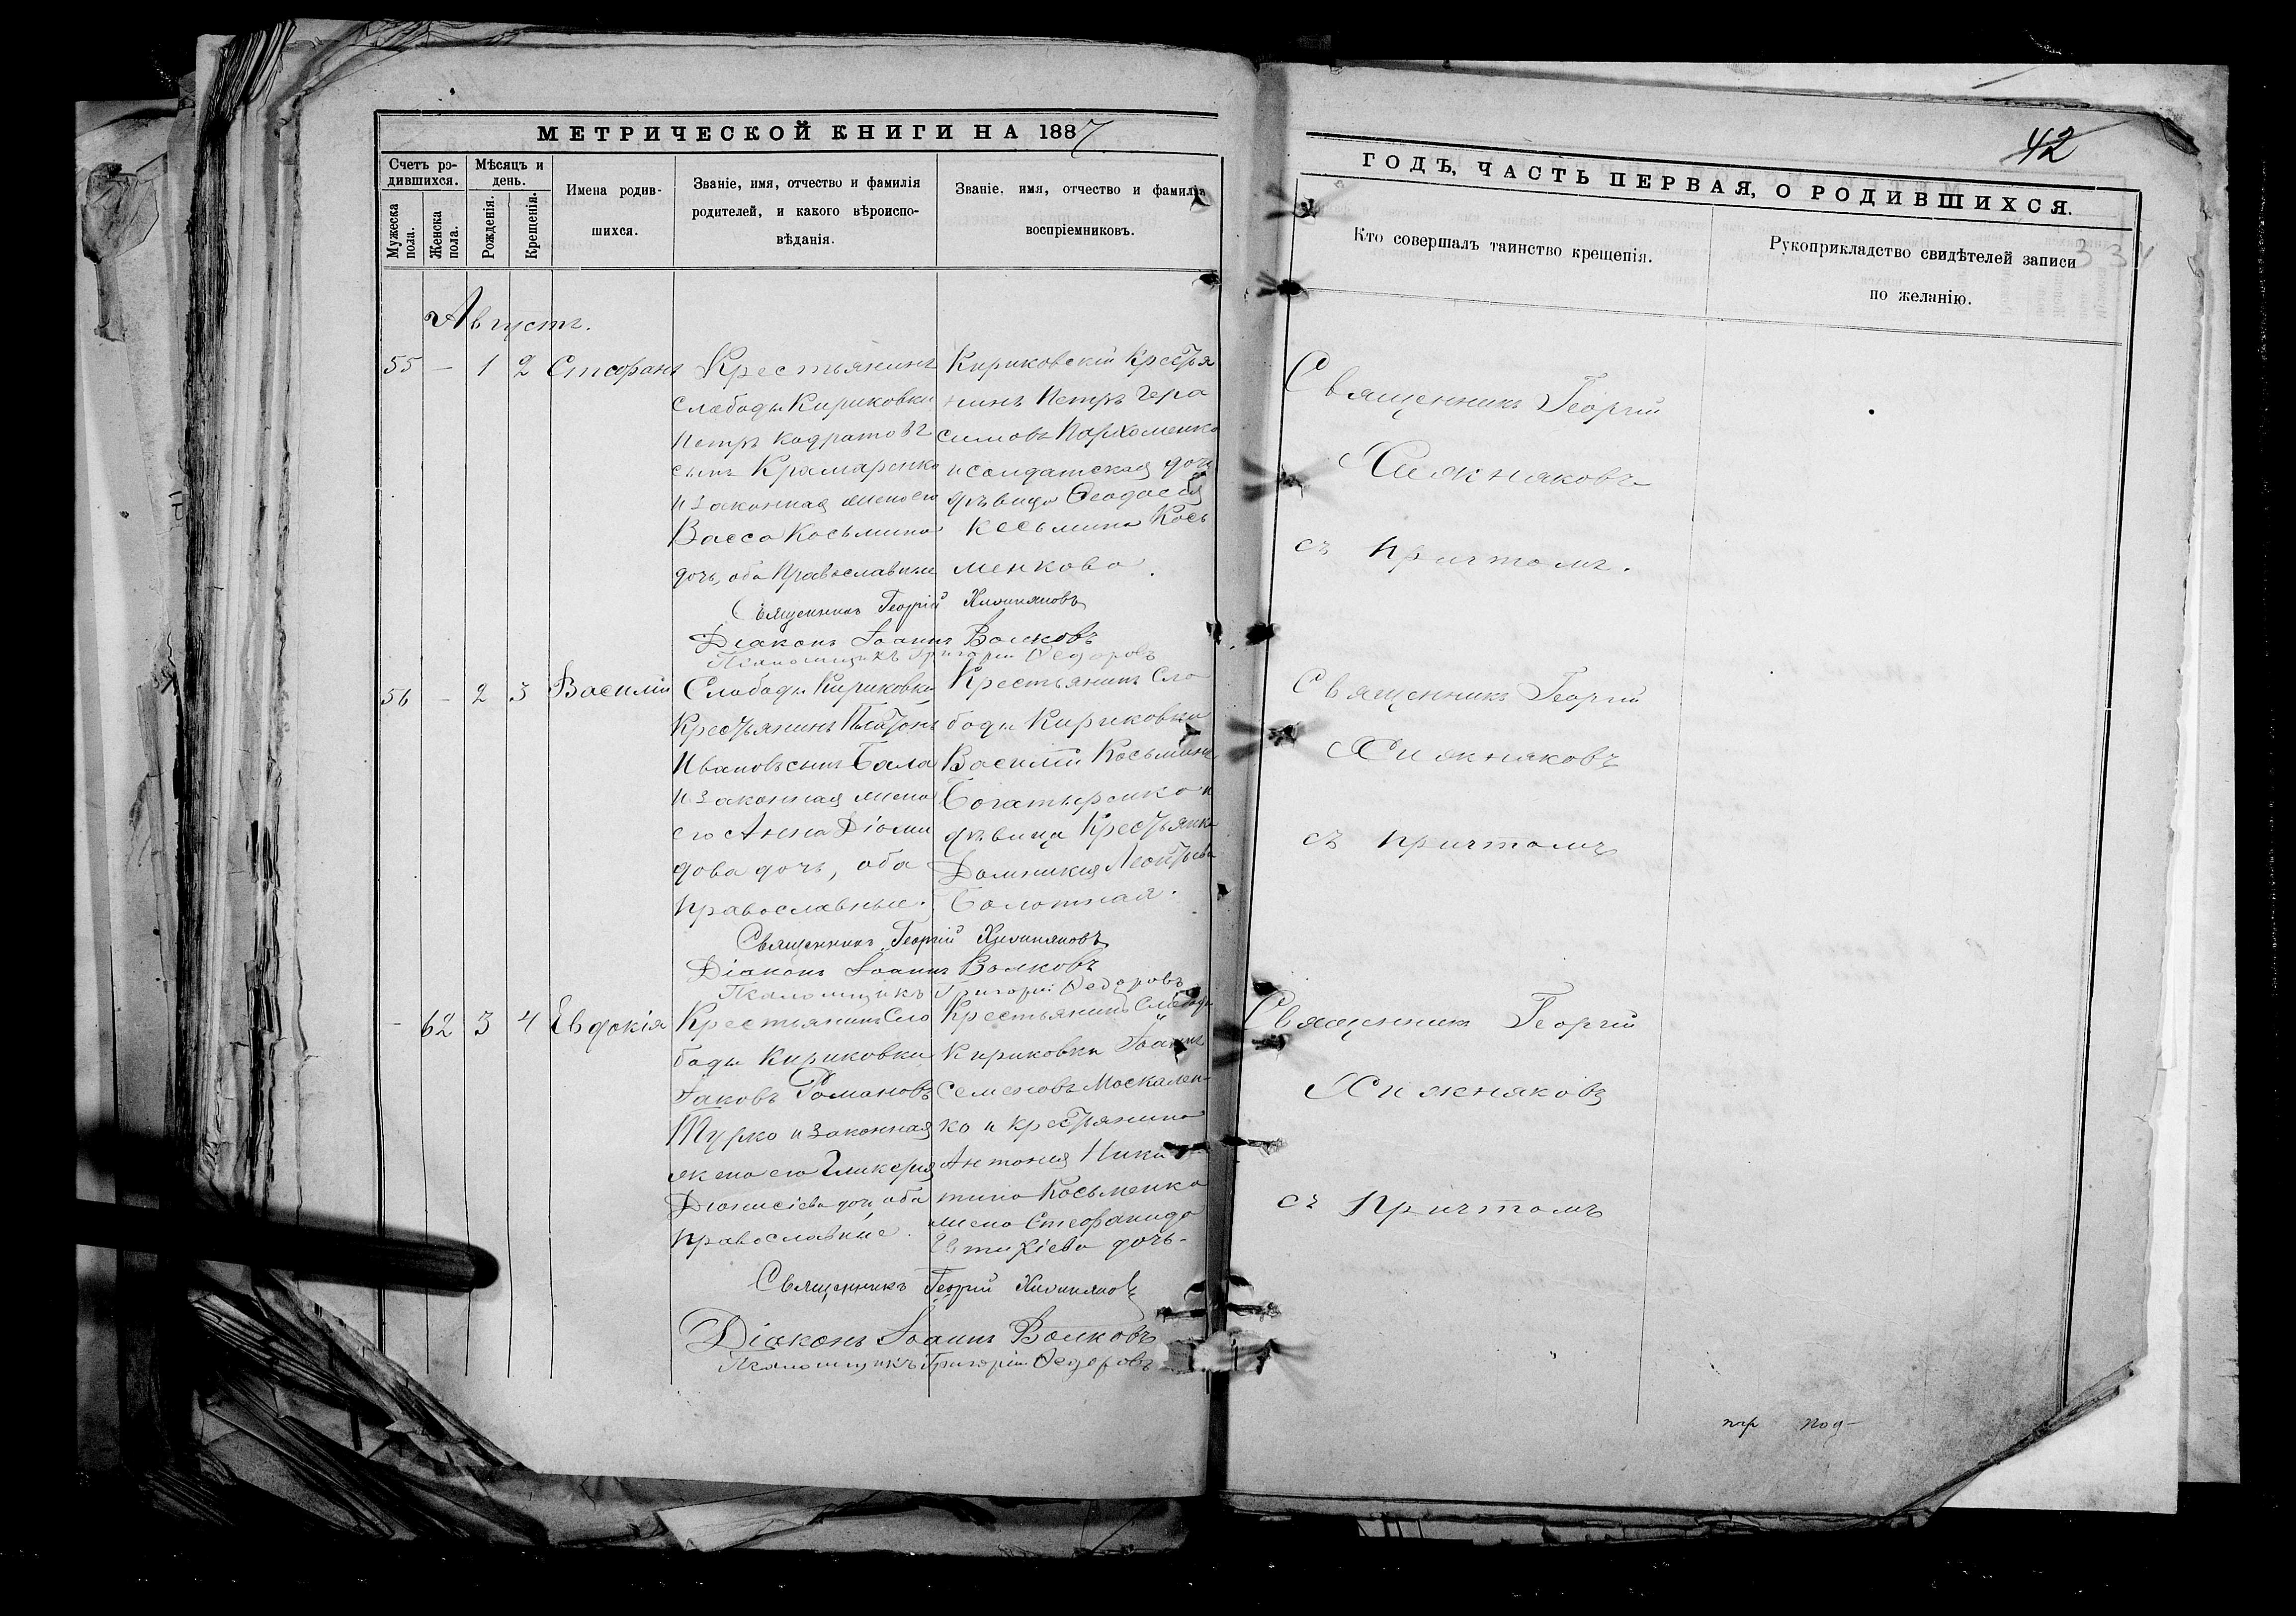 МЕТРИЧЕСКОЙ КНИГИ НА 1887
Счетъ ро-
дившихся.
Мужеска
пола.
Женска
пола.
Мѣсяцъ и
день.
Рожденія.
Крещенія.
Имена родив-
шихся.
Званіе, имя, отчество и фамилія
родителей, и какого вѣроиспо-
вѣданія.
Званіе, имя, отчество и фамилія
воспріемниковъ.
Августъ.
55 – 1 2 Стефанъ
Крестьянинъ
Слабоды Кириковки
Петръ Кодратовъ
сынъ Крамаренко
и законная жена его
Васса Косьмина
дочь, оба Православные
Кириковскій Крестья
нинъ Петръ Гера
симовъ Пархоменко
и солдатская дочь
дѣвица Ѳеодосія
Косьмина Кось
менкова.
Священникъ Георгій Хижняковъ
Діаконъ Іоаннъ Волковъ
Псаломщикъ Григорій Ѳедоровъ
56 – 2 3 Василій
Слабоды Кириковки
Крестьянинъ Платонъ
Ивановъ сынъ Бала
и законная жена
его Анна Діоми
дова дочь, оба
православные.
Крестьянинъ Сло
боды Кириковки
Василій Косьминъ
Богатыренко и
дѣвица Крестьянка
Домникія Леонтьева
Болотная.
Священникъ Георгій Хижняковъ
Діаконъ Іоаннъ Волковъ
Псаломщикъ Григорій Ѳедоровъ
– 62 3 4 Евдокія
Крестьянинъ Сло
боды Кириковки
Іаковъ Романовъ
Турко и законная
жена его Гликерія
Діонисіева дочь, оба
православные.
Крестьянинъ Слободы
Кириковки Іоаннъ
Семеновъ Москален-
ко и крестьянина
Антонія Ники
тина Косьменко
жена Стефанида
Евтихіева дочь.
Священникъ Георгій Хижняковъ
Діаконъ Іоаннъ Волковъ
Псаломщикъ Григорій Ѳедоровъ
42
ГОДЪ, ЧАСТЬ ПЕРВАЯ, О РОДИВШИХСЯ.
Кто совершалъ таинство крещенія.
Рукоприкладство свидѣтелей записи
по желанію.
Священникъ Георгій
Хижняковъ
съ причтомъ.
Священникъ Георгій
Хижняковъ
съ причтомъ
Священникъ Георгій
Хижняковъ
съ Причтомъ